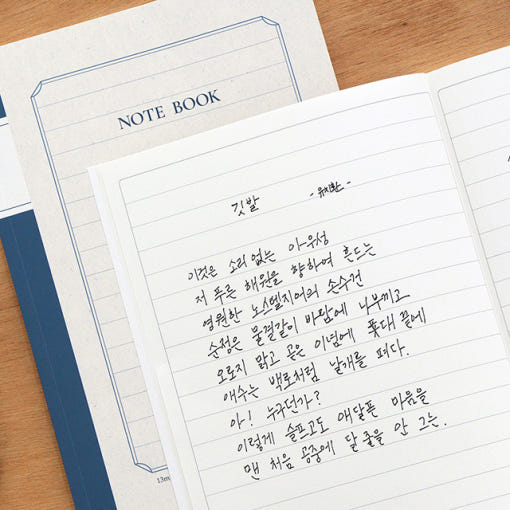 NOTE BOOK
깃발 - 유치환 -
이것은 소리없는 아우성
저 푸른 해원을 향하여 흔드는
영원한 노스텔지어의 손수건
순정은 물결같이 바람에 나부끼고
오로지 맑고 곧은 이념에 푯대 끝에
애수는 백로처럼 날개를 펴다.
아! 누구던가?
이렇게 슬프고도 애달픈 마음을
맨 처음 공중에 달 줄을 안 그는.